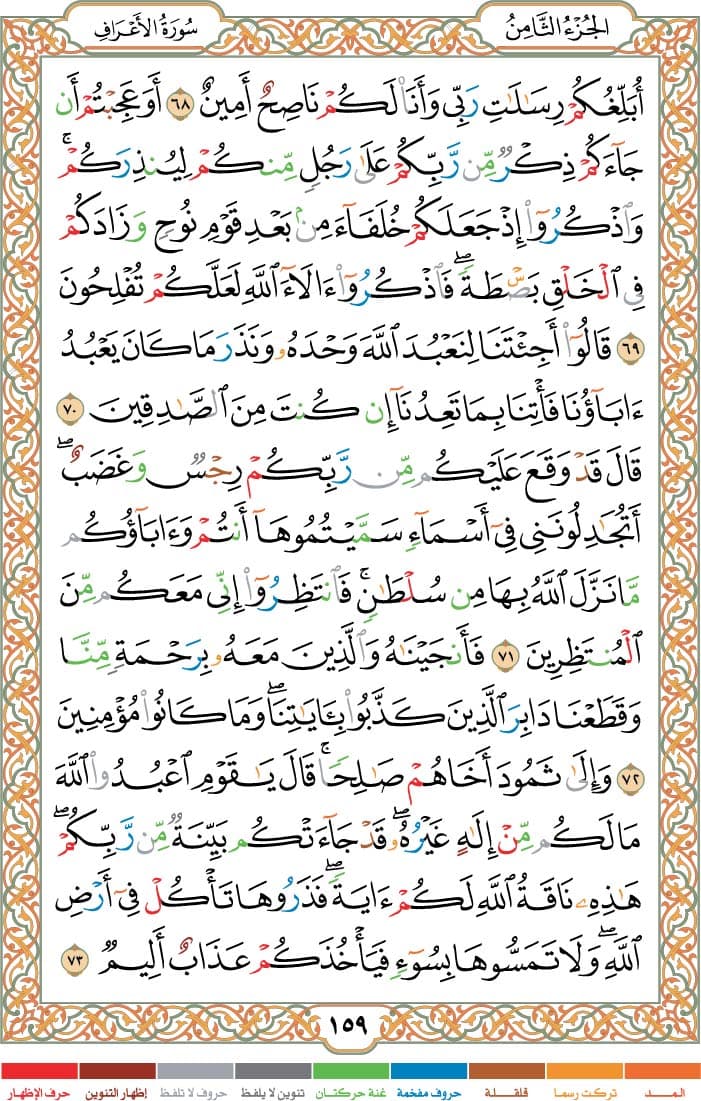 الجزء الثامن
سورة الأعراف
أُبَلِّغُكُمْ رِسَالَاتِ رَبِّي وَأَنَا۠ لَكُمْ نَاصِحٌ أَمِينٌ ٦٨ أَوَعَجِبْتُمْ أَن
جَآءَكُمْ ذِكْرٌ مِّن رَّبِّكُمْ عَلَىٰ رَجُلٍ مِّنكُمْ لِيُنذِرَكُمْ ۚ
وَٱذْكُرُوٓا۟ إِذْ جَعَلَكُمْ خُلَفَآءَ مِنۢ بَعْدِ قَوْمِ نُوحٍ وَزَادَكُمْ
فِي ٱلْخَلْقِ بَصْۜطَةً ۖ فَٱذْكُرُوٓا۟ ءَالَآءَ ٱللَّهِ لَعَلَّكُمْ تُفْلِحُونَ
٦٩ قَالُوٓا۟ أَجِئْتَنَا لِنَعْبُدَ ٱللَّهَ وَحْدَهُۥ وَنَذَرَ مَا كَانَ يَعْبُدُ
ءَابَآؤُنَا فَأْتِنَا بِمَا تَعِدُنَآ إِن كُنتَ مِنَ ٱلصَّـٰدِقِينَ ٧٠
قَالَ قَدْ وَقَعَ عَلَيْكُم مِّن رَّبِّكُمْ رِجْسٌ وَغَضَبٌ ۖ
أَتُجَـٰدِلُونَنِي فِىٓ أَسْمَآءٍ سَمَّيْتُمُوهَآ أَنتُمْ وَءَابَآؤُكُم
مَّا نَزَّلَ ٱللَّهُ بِهَا مِن سُلْطَـٰنٍ ۚ فَٱنتَظِرُوٓا۟ إِنِّي مَعَكُم مِّنَ
ٱلْمُنتَظِرِينَ ٧١ فَأَنجَيْنَـٰهُ وَٱلَّذِينَ مَعَهُۥ بِرَحْمَةٍ مِّنَّا
وَقَطَعْنَا دَابِرَ ٱلَّذِينَ كَذَّبُوا۟ بِـَٔايَـٰتِنَا ۖ وَمَا كَانُوا۟ مُؤْمِنِينَ
٧٢ وَإِلَىٰ ثَمُودَ أَخَاهُمْ صَـٰلِحًا ۚ قَالَ يَـٰقَوْمِ ٱعْبُدُوا۟ ٱللَّهَ
مَا لَكُم مِّنْ إِلَـٰهٍ غَيْرُهُۥ ۖ قَدْ جَآءَتْكُم بَيِّنَةٌ مِّن رَّبِّكُمْ ۖ
هَـٰذِهِۦ نَاقَةُ ٱللَّهِ لَكُمْ ءَايَةً ۖ فَذَرُوهَا تَأْكُلْ فِىٓ أَرْضِ
ٱللَّهِ ۖ وَلَا تَمَسُّوهَا بِسُوٓءٍ فَيَأْخُذَكُمْ عَذَابٌ أَلِيمٌ ٧٣
١٥٩
المــــد تركت رسما قلقـــلة حروف مفخمة غنة حركتان تنوين لا يلفظ حروف لا تلفظ إظهار التنوين حرف الإظهار